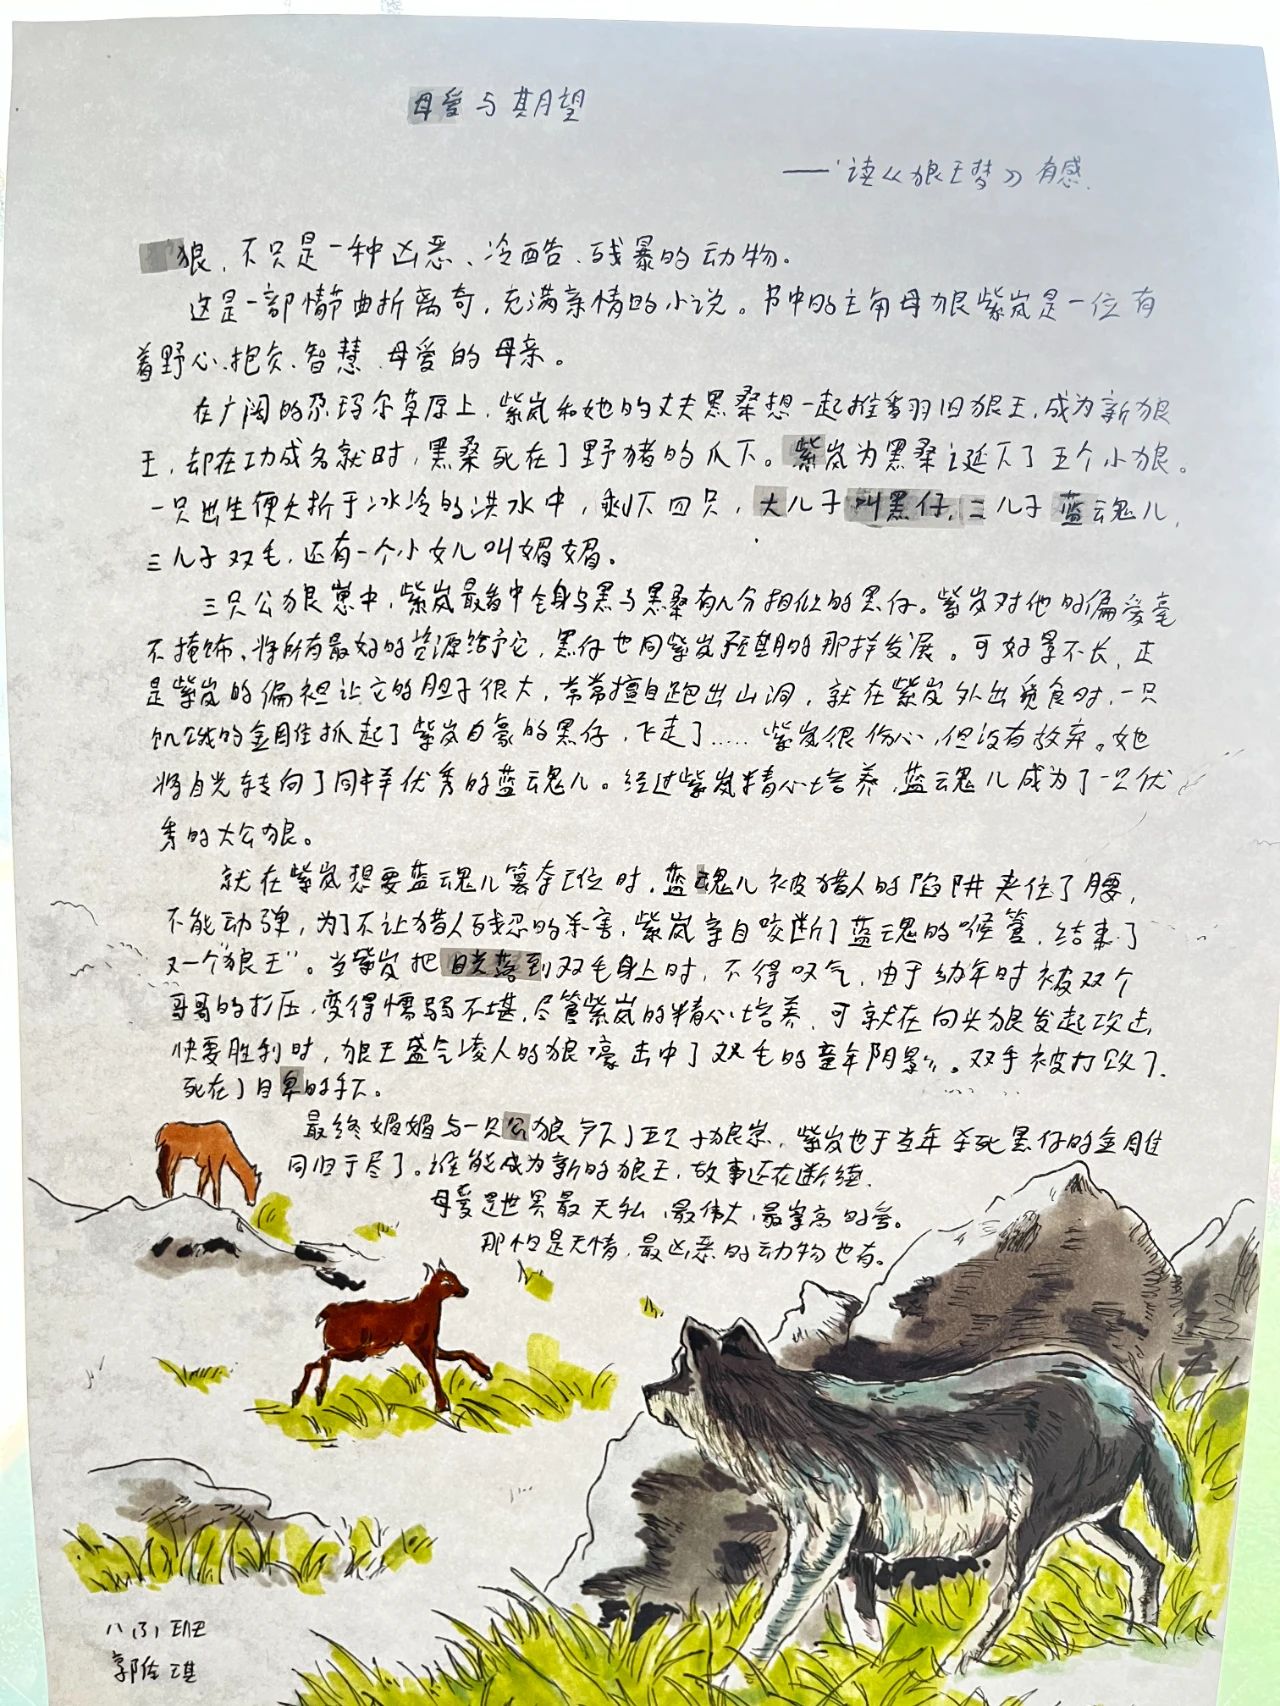 母爱与期望
——读《狼王梦》有感
狼、不只是一种凶恶、冷酷、残暴的动物.
这是一部情节曲折离奇，充满亲情的小说。书中的主角母狼紫岚是一位有
着野心、抱负、智慧、母爱的母亲。
在广阔的尕玛尔草原上，紫岚和她的丈夫黑桑想一起推翻旧狼王，成为新狼
王，却在功成名就时，黑桑死在了野猪的爪下。紫岚为黑桑诞下了五个小狼。
一只出生便夭折于冰冷的洪水中，剩下四只，大儿子叫黑仔，二儿子蓝魂儿，
三儿子双毛，还有一个小女儿叫媚媚。
三只公狼崽中，紫岚最看中全身乌黑与黑桑有八分相似的黑仔。紫岚对他的偏爱毫
不掩饰、将所有最好的资源给予它，黑仔也同紫岚预期的那样发展。可好景不长，正
是紫岚的偏袒让它的胆子很大，常常擅自跑出山洞，就在紫岚外出觅食时，一只
饥饿的金雕抓起了紫岚自豪的黑仔，飞走了……紫岚很伤心，但没有放弃。她
将目光转向了同样优秀的蓝魂儿。经过紫岚精心培养，蓝魂儿成为了一只优
秀的大公狼。
就在紫岚想要蓝魂儿篡夺王位时，蓝魂儿被猎人的陷阱夹住了腰，
不能动弹，为了不让猎人残忍的杀害，紫岚亲自咬断了蓝魂的喉管，结束了
又一个"狼王"。当紫岚把目光落到双毛身上时，不得叹气，由于幼年时被双个
哥哥的打压，变得懦弱不堪，尽管紫岚的精心培养，可就在向头狼发起攻击，
快要胜利时，狼王盛气凌人的狼嚎击中了双毛的童年阴影。双手被打败了，
死在了自卑的手下。
最终媚媚与一只公狼产下了五只小狼崽，紫岚也于当年杀死黑仔的金雕
同归于尽了。谁能成为新的狼王，故事还在断续.
母爱是世界最无私，最伟大，最崇高的爱。
那怕是无情，最凶恶的动物也有。
八(3)班